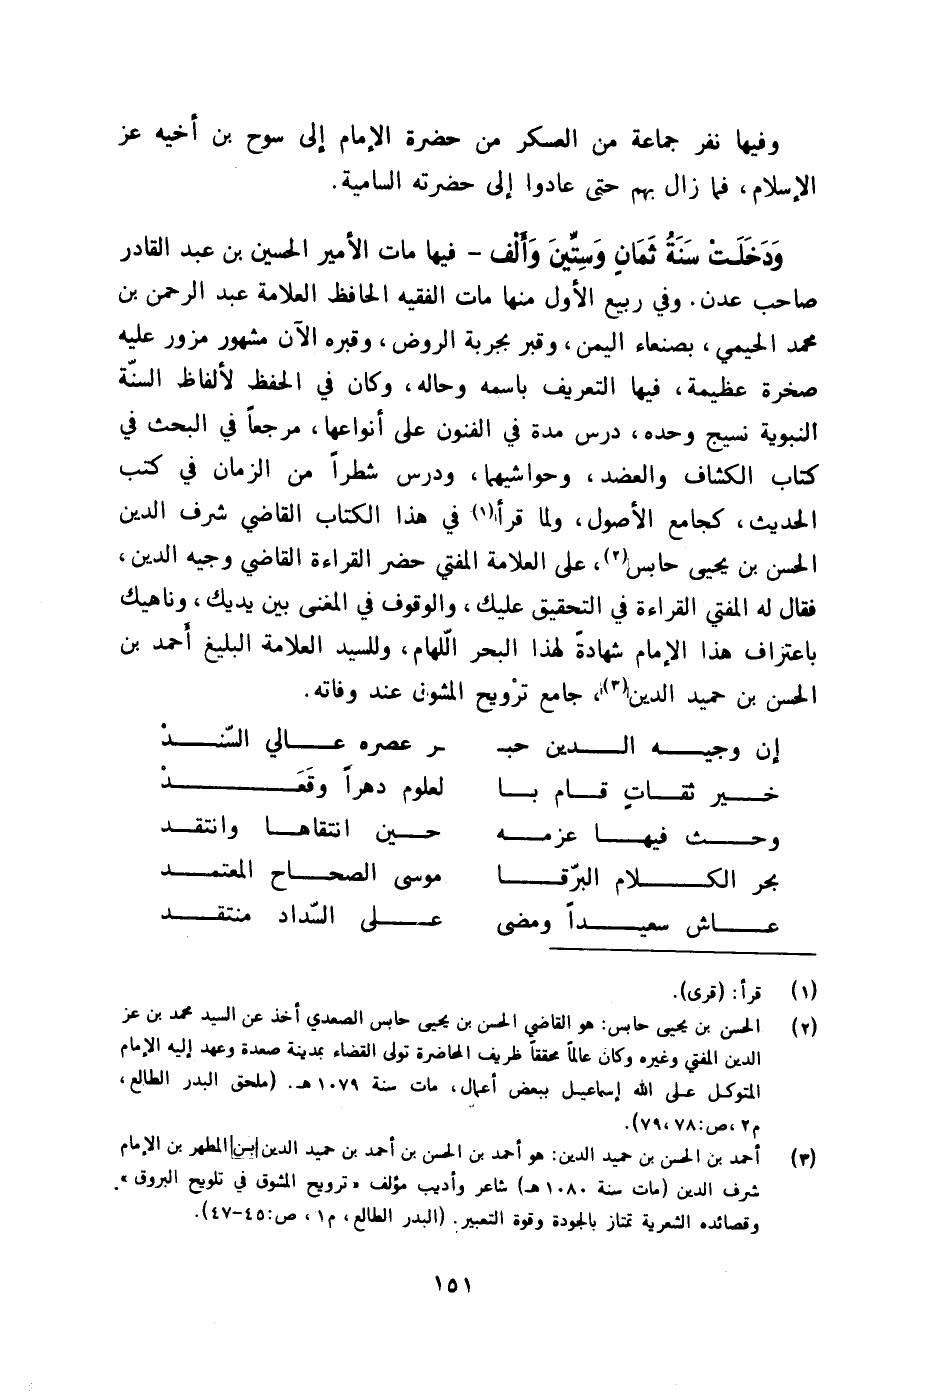 وفيها نفر جماعة من العسكر من حضرة الإمام إلى سوح بن أخيه عز
الإسلام، فما زال بهم حتى عادوا إلى حضرته السامية.
وَدَخَلَتْ سَنَةُ ثَمَانٍ وَسِتِّينَ وَأَلْف - فيها مات الأمير الحسين بن عبد القادر
صاحب عدن. وفي ربيع الأول منها مات الفقيه الحافظ العلامة عبد الرحمن بن
محمد الحيمي، بصنعاء اليمن، وقبر بجربة الروض، وقبره الآن مشهور مزور عليه
صخرة عظيمة، فيها التعريف باسمه وحاله، وكان في الحفظ لألفاظ السنّة
النبوية نسيج وحده، درس مدة في الفنون على أنواعها، مرجعاً في البحث في
كتاب الكشاف والعضد، وحواشيهما، ودرس شطراً من الزمان في كتب
الحديث، كجامع الأصول، ولما قرأ(١) في هذا الكتاب القاضي شرف الدين
الحسن بن يحيى حابس(٢)، على العلامة المفتي حضر القراءة القاضي وجيه الدين،
فقال له المفتي القراءة في التحقيق عليك، والوقوف في المغنى بين يديك، وناهيك
باعتراف هذا الإمام شهادةً لهذا البحر اللّهام، وللسيد العلامة البليغ أحمد بن
الحسن بن حميد الدين(٣)، جامع ترْويح المشوق عند وفاته.
إن وجيـــه الـــدين حبـ ـر عصره عـــالي السّنـــدْ
خـــير ثقـــاتٍ قـــام بـــا لعلوم دهراً وقَعَـــدْ
وحـــث فيهـــا عزمـــه حـــين انتقاهـــا وانتقـــد
بحر الكـــلام البرّقـــا موسى الصحـــاح المعتمـــد
عـــاش سعيـــداً ومضى عـــلى السّداد منتقـــد
(١) قرأ: (قرى).
(٢) الحسن بن يحيى حابس: هو القاضي الحسن بن يحيى حابس الصعدي أخذ عن السيد محمد بن عز
الدين المفتي وغيره وكان عالماً محققاً ظريف المحاضرة تولى القضاء بمدينة صعدة وعهد إليه الإمام
المتوكل على الله إسماعيل ببعض أعمال، مات سنة ١٠٧٩ هـ. (ملحق البدر الطالع،
م٢، ص: ٧٨، ٧٩).
(٣) أحمد بن الحسن بن حميد الدين: هو أحمد بن الحسن بن أحمد بن حميد الدين[بن] المطهر بن الإمام
شرف الدين (مات سنة ١٠٨٠ هـ) شاعر وأديب مؤلف «ترويح المشوق في تلويح البروق».
وقصائده الشعرية تمتاز بالجودة وقوة التعبير. (البدر الطالع، م١، ص: ٤٥-٤٧).
١٥١